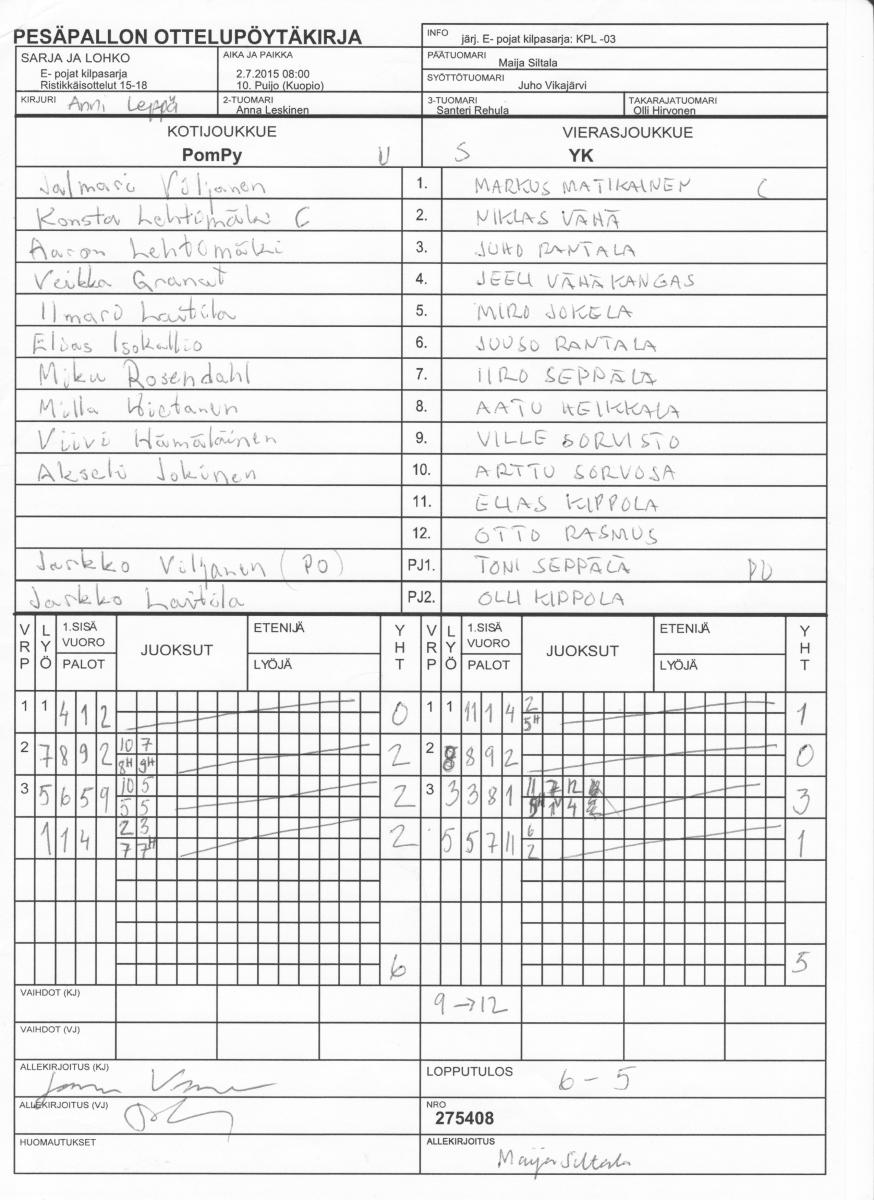 PESÄPALLON OTTELUPÖYTÄKIRJA
INFO järj. E- pojat kilpasarja: KPL -03
SARJA JA LOHKO
E- pojat kilpasarja
Ristikkäisottelut 15-18
AIKA JA PAIKKA
2.7.2015 08:00
10. Puijo (Kuopio)
PÄÄTUOMARI
Maija Siltala
SYÖTTÖTUOMARI
Juho Vikajärvi
KIRJURI Anni Leppä
2-TUOMARI
Anna Leskinen
3-TUOMARI
Santeri Rehula
TAKARAJATUOMARI
Olli Hirvonen
KOTIJOUKKUE
PomPy U
VIERASJOUKKUE
S YK
Jalmari Viljanen 1. MARKUS MATIKAINEN C
Konsta Lehtimäki C 2. NIKLAS VÄHÄ
Aaron Lehtomäki 3. JUHO RANTALA
Veikka Granat 4. JEELI VÄHÄKANGAS
Ilmari Laitila 5. MIRO JOKELA
Elias Isokallio 6. JUUSO RANTALA
Miku Rosendahl 7. IIRO SEPPÄLÄ
Milla Hietanen 8. AATU HEIKKALA
Viivi Hämäläinen 9. VILLE SORVISTO
Akseli Jokinen 10. ARTTU SORVOJA
11. ELIAS KIPPOLA
12. OTTO RASMUS
Jarkko Viljanen (PO) PJ1. TONI SEPPÄLÄ PO
Jarkko Laitila PJ2. OLLI KIPPOLA
VRP LYÖ 1.SISÄ VUORO PALOT JUOKSUT ETENIJÄ LYÖJÄ YHT VRP LYÖ 1.SISÄ VUORO PALOT JUOKSUT ETENIJÄ LYÖJÄ YHT
1 1 4 1 2 0 1 1 11 1 4 2 1
5H
2 7 8 9 2 10 7 2 2 8 8 9 2 0
8H 9H
3 5 6 5 9 10 5 2 3 3 3 8 1 11 7 12 3
5 5 4
1 1 4 2 3 2 5 5 7 11 6 1
7 7H 2
6 5
VAIHDOT (KJ) 9 →12
VAIHDOT (VJ)
ALLEKIRJOITUS (KJ)
LOPPUTULOS 6 - 5
ALLEKIRJOITUS (VJ)
NRO
275408
HUOMAUTUKSET
ALLEKIRJOITUS
Maija Siltala